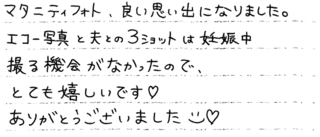 マタニティフォト、良い思い出になりました。
エコー写真と夫との3ショットは妊娠中
撮る機会がなかったので、
とても嬉しいです♡
ありがとうございました ♡